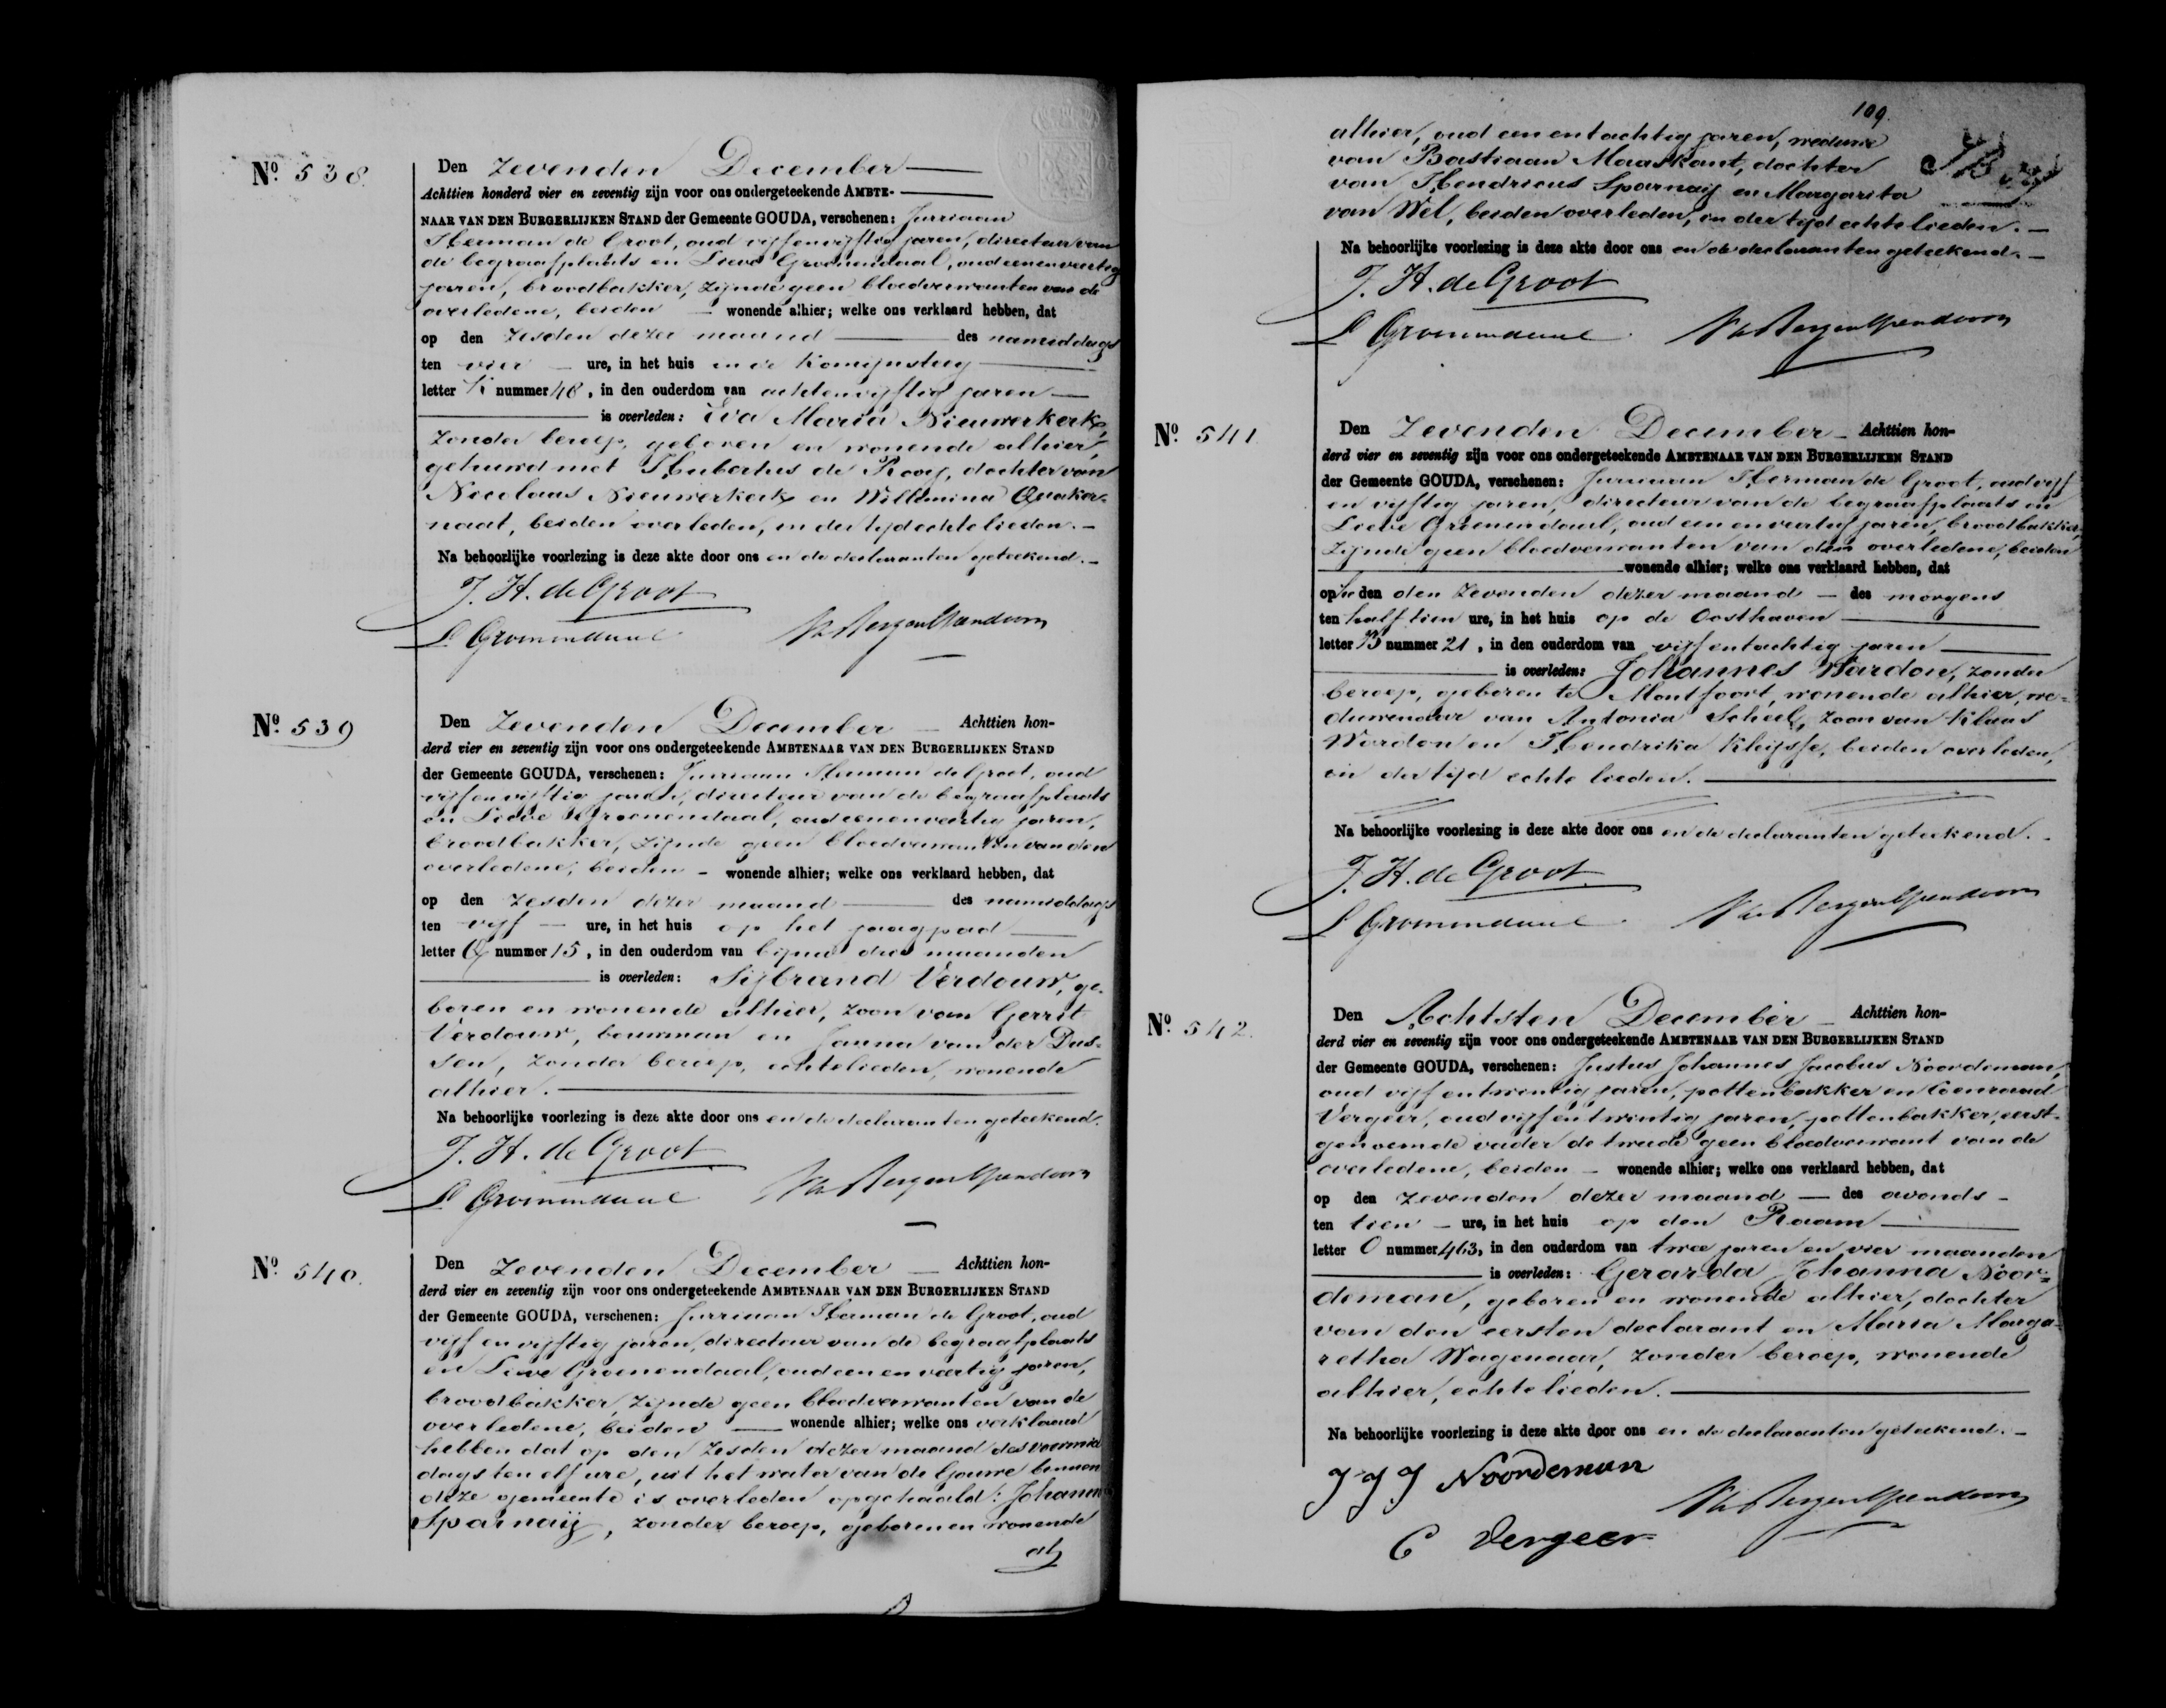 Nº. 538.
Den Zevenden December
Achttien honderd vier en zeventig zijn voor ons ondergeteekende AMBTE-
NAAR VAN DEN BURGERLIJKEN STAND der Gemeente GOUDA, verschenen: Jurriaan
Herman de Groot, oud vijf en vijftig jaren, directeur van
de begraafplaats en Lieve Groenendaal, oud een en veertig
jaren, broodbakker, zijnde geen bloedverwanten van de
overledene, beiden wonende alhier; welke ons verklaard hebben, dat
op den zesden dezer maand des namiddags
ten vier ure, in het huis in de Komijnsteeg
letter K nummer 48, in den ouderdom van acht en vijftig jaren
is overleden: Eva Maria Nieuwerkerk,
zonder beroep, geboren en wonende alhier,
gehuwd met Hubertus de Rooij, dochter van
Nicolaas Nieuwerkerk en Willemina Quaker-
naat, beiden overleden, in der tijd echtelieden.
Na behoorlijke voorlezing is deze akte door ons en de declaranten geteekend.
J. H. de Groot
L Groenendaal
Nº. 539
Den Zevenden December Achttien hon-
derd vier en zeventig zijn voor ons ondergeteekende AMBTENAAR VAN DEN BURGERLIJKEN STAND
der Gemeente GOUDA, verschenen: Jurriaan Herman de Groot, oud
vijf en vijftig jaren, directeur van de begraafplaats
en Lieve Groenendaal, oud een en veertig jaren,
broodbakker, zijnde geen bloedverwanten van den
overledene, beiden wonende alhier; welke ons verklaard hebben, dat
op den zesden dezer maand des namiddags
ten vijf ure, in het huis op het jaagpad
letter Q nummer 15, in den ouderdom van bijna drie maanden
is overleden: Sijbrand Verdouw, ge-
boren en wonende alhier, zoon van Gerrit
Verdouw, bouwman en Janna van der Dus-
sen, zonder beroep, echtelieden, wonende
alhier.
Na behoorlijke voorlezing is deze akte door ons en de declaranten geteekend.
J. H. de Groot
L Groenendaal
Nº. 540.
Den Zevenden December Achttien hon-
derd vier en zeventig zijn voor ons ondergeteekende AMBTENAAR VAN DEN BURGERLIJKEN STAND
der Gemeente GOUDA, verschenen: Jurriaan Herman de Groot, oud
vijf en vijftig jaren, directeur van de begraafplaats
en Lieve Groenendaal, oud een en veertig jaren,
broodbakker, zijnde geen bloedverwanten van de
overledene, beiden wonende alhier; welke ons verklaard
hebben dat op den zesden dezer maand des voormid
dags ten elf ure, uit het water van de Gouwe binnen
deze gemeente is overleden opgehaald: Johanna
Sparnaaij, zonder beroep, geboren en wonende
al
109.
alhier, oud een en tachtig jaren, weduwe
van Bastiaan Maaskant, dochter
van Hendricus Sparnaaij en Margarita
van Wel, beiden overleden, in der tijd echtelieden.
Na behoorlijke voorlezing is deze akte door ons en de declaranten geteekend.
J. H. de Groot
L Groenendaal
Nº. 541
Den Zevenden December Achttien hon-
derd vier en zeventig zijn voor ons ondergeteekende AMBTENAAR VAN DEN BURGERLIJKEN STAND
der Gemeente GOUDA, verschenen: Jurriaan Herman de Groot, oud vijf
en vijftig jaren, directeur van de begraafplaats en
Lieve Groenendaal, oud een en veertig jaren, broodbakker,
zijnde geen bloedverwanten van den overledene, beiden
wonende alhier; welke ons verklaard hebben, dat
op heden den zevenden dezer maand des morgens
ten half tien ure, in het huis op de Oosthaven
letter B nummer 21, in den ouderdom van vijf en tachtig jaren
is overleden: Johannes Wardon, zonder
beroep, geboren te Montfoort, wonende alhier, we-
duwenaar van Antonia Scheel, zoon van Klaas
Wardon en Hendrika Kleijsse, beiden overleden,
in der tijd echtelieden.
Na behoorlijke voorlezing is deze akte door ons en de declaranten geteekend.
J. H. de Groot
L Groenendaal
Nº. 542.
Den Achtsten December Achttien hon-
derd vier en zeventig zijn voor ons ondergeteekende AMBTENAAR VAN DEN BURGERLIJKEN STAND
der Gemeente GOUDA, verschenen: Justus Johannes Jacobus Noordeman,
oud vijf en twintig jaren, pottenbakker en Coenraad
Vergeer, oud vijf en twintig jaren, pottenbakker, eerst-
genoemde vader de tweede geen bloedverwant van de
overledene, beiden wonende alhier; welke ons verklaard hebben, dat
op den zevenden dezer maand des avonds
ten tien ure, in het huis op den Raam
letter O nummer 463, in den ouderdom van twee jaren en vier maanden
is overleden: Gerarda Johanna Noor-
deman, geboren en wonende alhier, dochter
van den eersten declarant en Maria Marga-
retha Wagenaar, zonder beroep, wonende
alhier, echtelieden.
Na behoorlijke voorlezing is deze akte door ons en de declaranten geteekend.
J J J Noordeman
C Vergeer